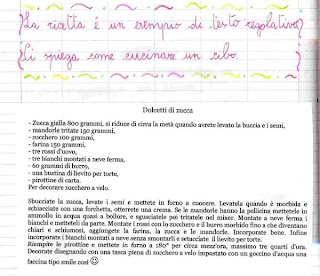 La ricetta é un esempio di testo regolativo.
Ci spiega come cucinare un cibo.
Dolcetti di zucca
- Zucca gialla 800 grammi, si riduce di circa la metà quando avrete levato la buccia e i semi,
- mandorle tritate 150 grammi,
- zucchero 100 grammi,
- farina 150 grammi,
- tre rossi d'uovo,
- tre bianchi montati a neve ferma,
- 60 grammi di burro,
- una bustina di lievito per torte,
- pirottine di carta.
Per decorare zucchero a velo.
Sbucciate la zucca, levate i semi e mettete in forno a cuocere. Levatela quando è morbida e
schiacciate con una forchetta, otterrete una crema. Se le mandorle hanno la pellicina mettetele in
ammollo in acqua quasi a bollore, e sgusciatele poi tritatele nel mixer. Montate a neve ferma i
bianchi e metteteli da parte. Montate i rossi con lo zucchero e il burro morbido fino a che diventano
chiari e schiumosi, aggiungete la farina, la zucca e le mandorle. Incorporate bene. Infine
incorporate i bianchi montati a neve senza smontarli e setacciate il lievito per torte.
Riempite le pirottine e mettete in forno a 180° per circa mezz'ora, massimo tre quarti d'ora.
Decorate disegnando con una tasca piena di zucchero a velo impastato con un goccino d'acqua una
faccina tipo smile così ☺